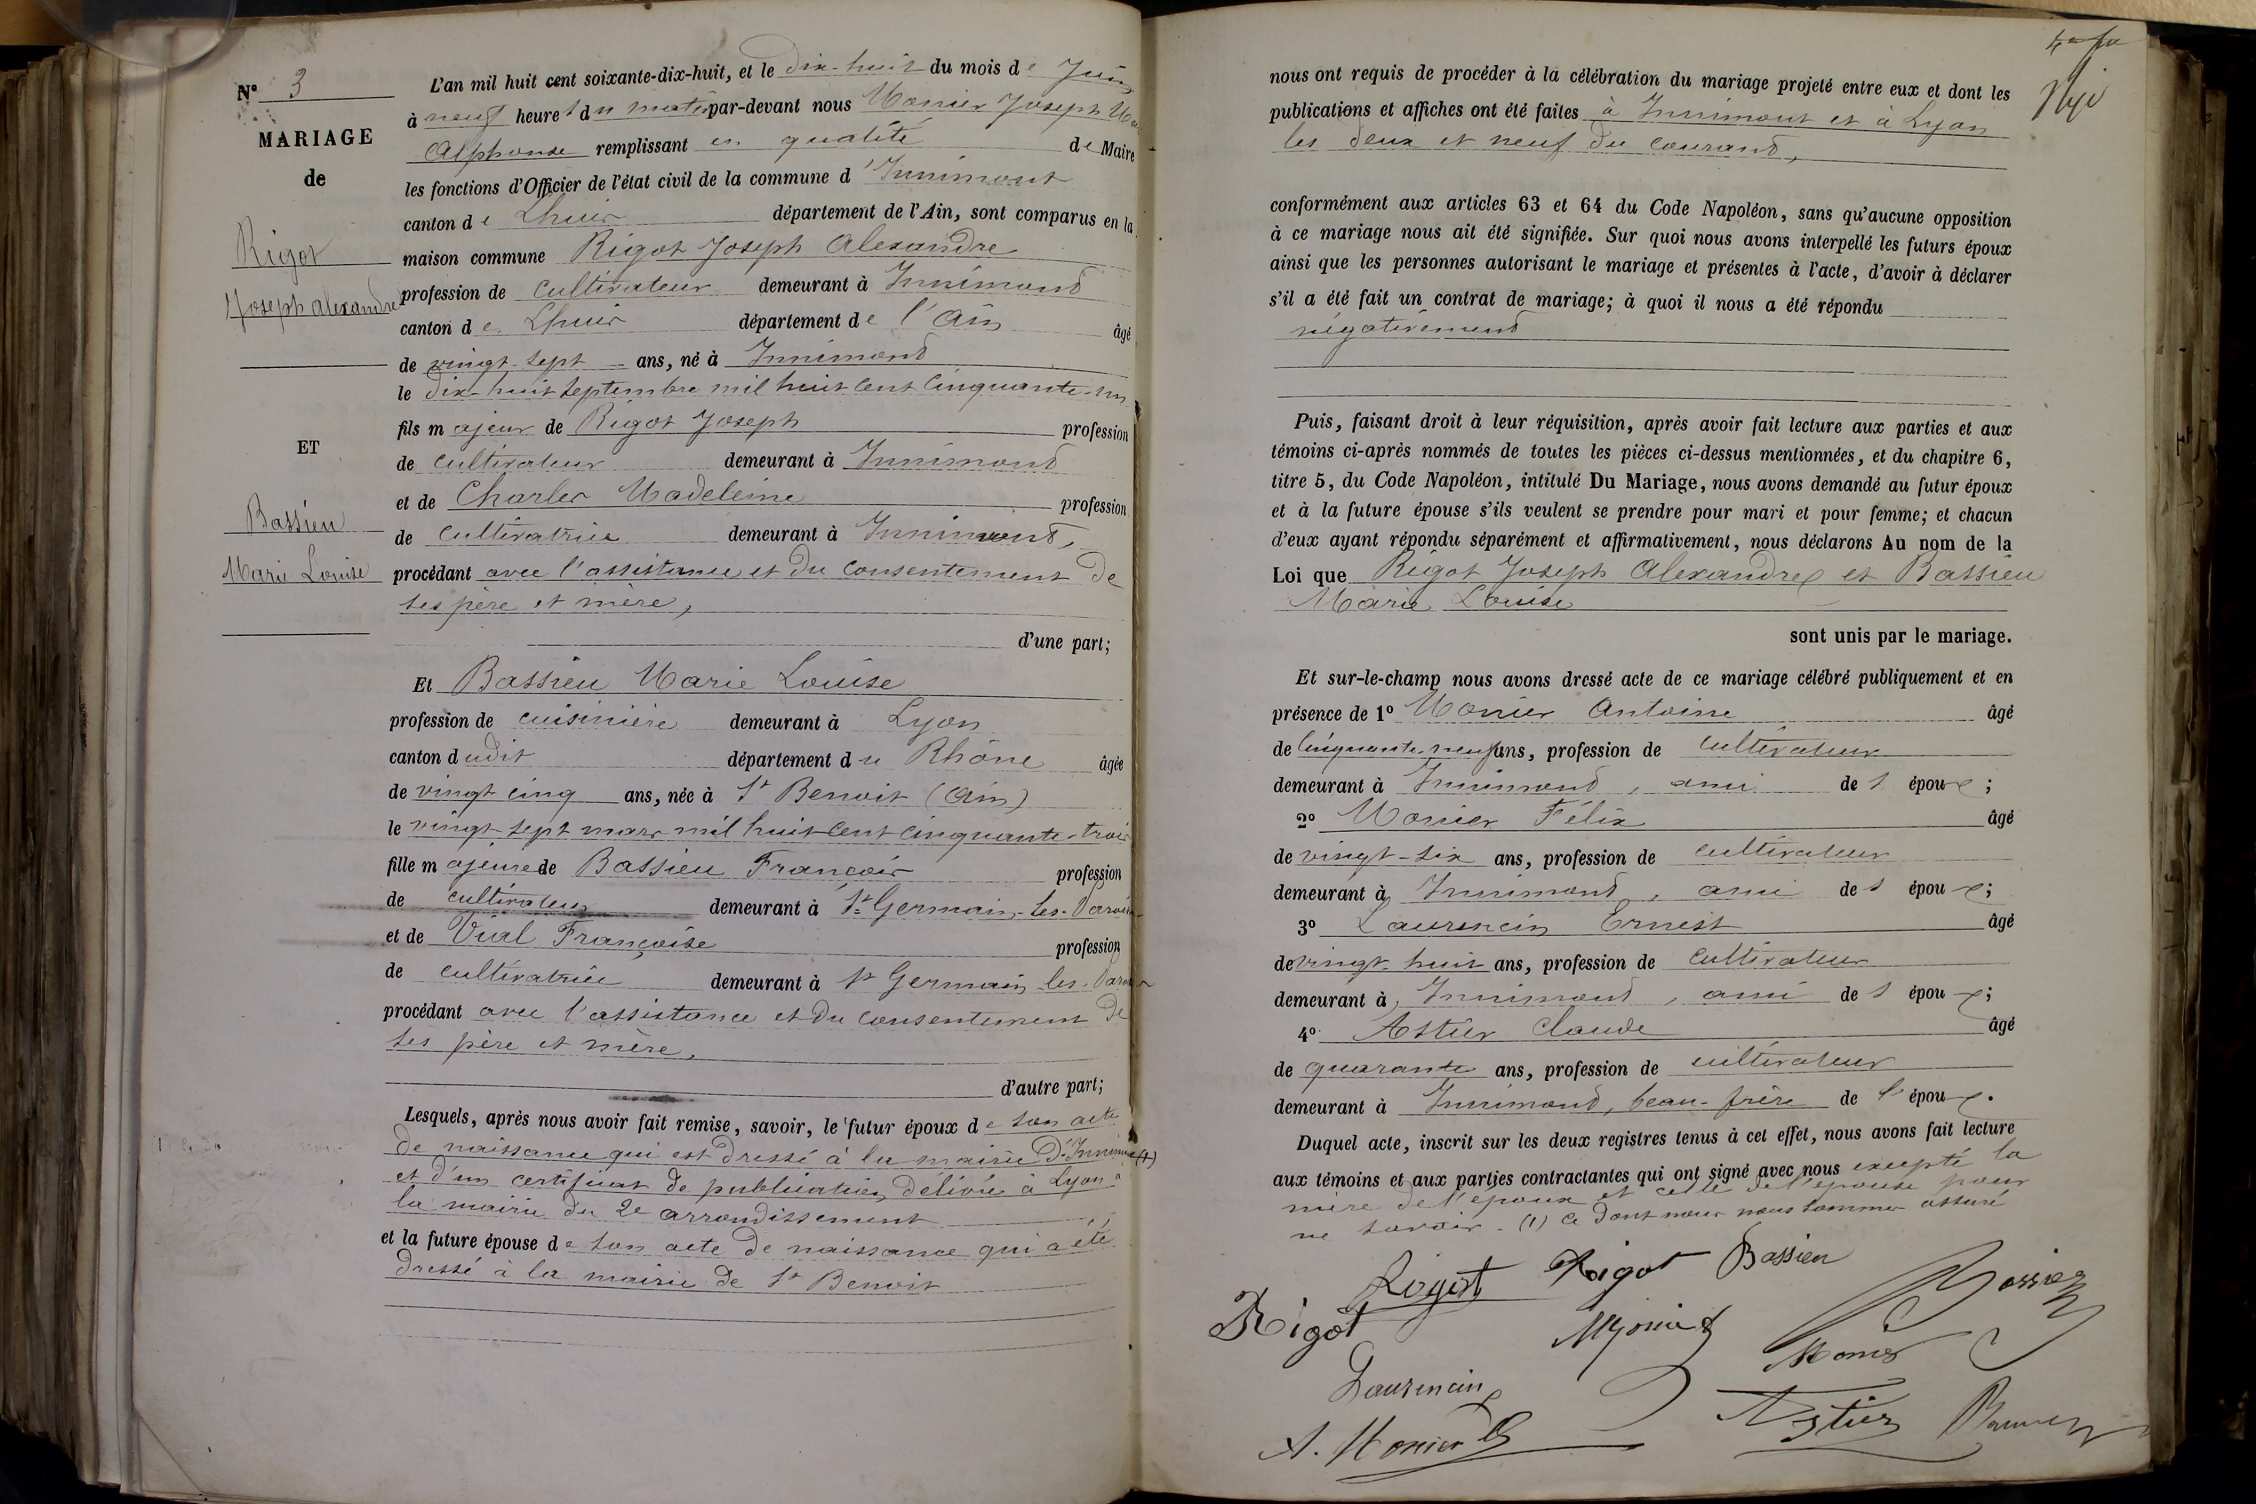 N° 3
MARIAGE
de
Rigot
Joseph Alexandre
ET
Bassieu
Marie Louise
L'an mil huit cent soixante-dix-huit, et le dix-huit du mois de Juin
à neuf heures du matin par-devant nous Monier Joseph
Alphonse remplissant en qualité de Maire
les fonctions d'Officier de l'état civil de la commune d'Innimont
canton de Lhuis département de l'Ain, sont comparus en la
maison commune Rigot Joseph Alexandre
profession de cultivateur demeurant à Innimond
canton de Lhuis département de l'Ain âgé
de vingt-sept ans, né à Innimond
le dix-huit septembre mil huit cent cinquante-un
fils majeur de Rigot Joseph profession
de cultivateur demeurant à Innimond
et de Charles Madeleine profession
de cultivatrice demeurant à Innimond,
procédant avec l'assistance et du consentement de
ses père et mère,
d'une part;
Et Bassieu Marie Louise
profession de cuisinière demeurant à Lyon
canton dudit département du Rhône âgée
de vingt cinq ans, née à St Benoit (Ain)
le vingt-sept mars mil huit cent cinquante-trois
fille majeure de Bassieu François profession
de cultivateur demeurant à St Germain-les-Paroi
et de Vial Françoise profession
de cultivatrice demeurant à St Germain-les-Paroi
procédant avec l'assistance et du consentement de
ses père et mère,
d'autre part;
Lesquels, après nous avoir fait remise, savoir, le futur époux de son acte
de naissance qui est dressé à la mairie d'Innimond (1)
et d'un certificat de publication délivré à Lyon à
la mairie du 2e arrondissement
et la future épouse de son acte de naissance qui a été
dressé à la mairie de St Benoit
nous ont requis de procéder à la célébration du mariage projeté entre eux et dont les
publications et affiches ont été faites à Innimont et à Lyon
les deux et neuf du courant,
conformément aux articles 63 et 64 du Code Napoléon, sans qu'aucune opposition
à ce mariage nous ait été signifiée. Sur quoi nous avons interpellé les futurs époux
ainsi que les personnes autorisant le mariage et présentes à l'acte, d'avoir à déclarer
s'il a été fait un contrat de mariage; à quoi il nous a été répondu
négativement
Puis, faisant droit à leur réquisition, après avoir fait lecture aux parties et aux
témoins ci-après nommés de toutes les pièces ci-dessus mentionnées, et du chapitre 6,
titre 5, du Code Napoléon, intitulé Du Mariage, nous avons demandé au futur époux
et à la future épouse s'ils veulent se prendre pour mari et pour femme; et chacun
d'eux ayant répondu séparément et affirmativement, nous déclarons Au nom de la
Loi que Rigot Joseph Alexandre et Bassieu
Marie Louise
sont unis par le mariage.
Et sur-le-champ nous avons dressé acte de ce mariage célébré publiquement et en
présence de 1° Monier Antoine âgé
de cinquante-neuf ans, profession de cultivateur
demeurant à Innimond, ami des époux;
2° Monier Félix âgé
de vingt-six ans, profession de cultivateur
demeurant à Innimond, ami des époux;
3° Laurencin Ernest âgé
de vingt-huit ans, profession de cultivateur
demeurant à Innimond, ami des époux;
4° Astier Claude âgé
de quarante ans, profession de cultivateur
demeurant à Innimond, beau-frère de l'époux.
Duquel acte, inscrit sur les deux registres tenus à cet effet, nous avons fait lecture
aux témoins et aux parties contractantes qui ont signé avec nous excepté la
mère de l'époux et celle de l'épouse pour
ne savoir. (1) ce dont nous nous sommes assuré
Rigot Rigot Bassieu
Rigot Monier Bassieu
Monier
Laurencin
A. Monier Astier